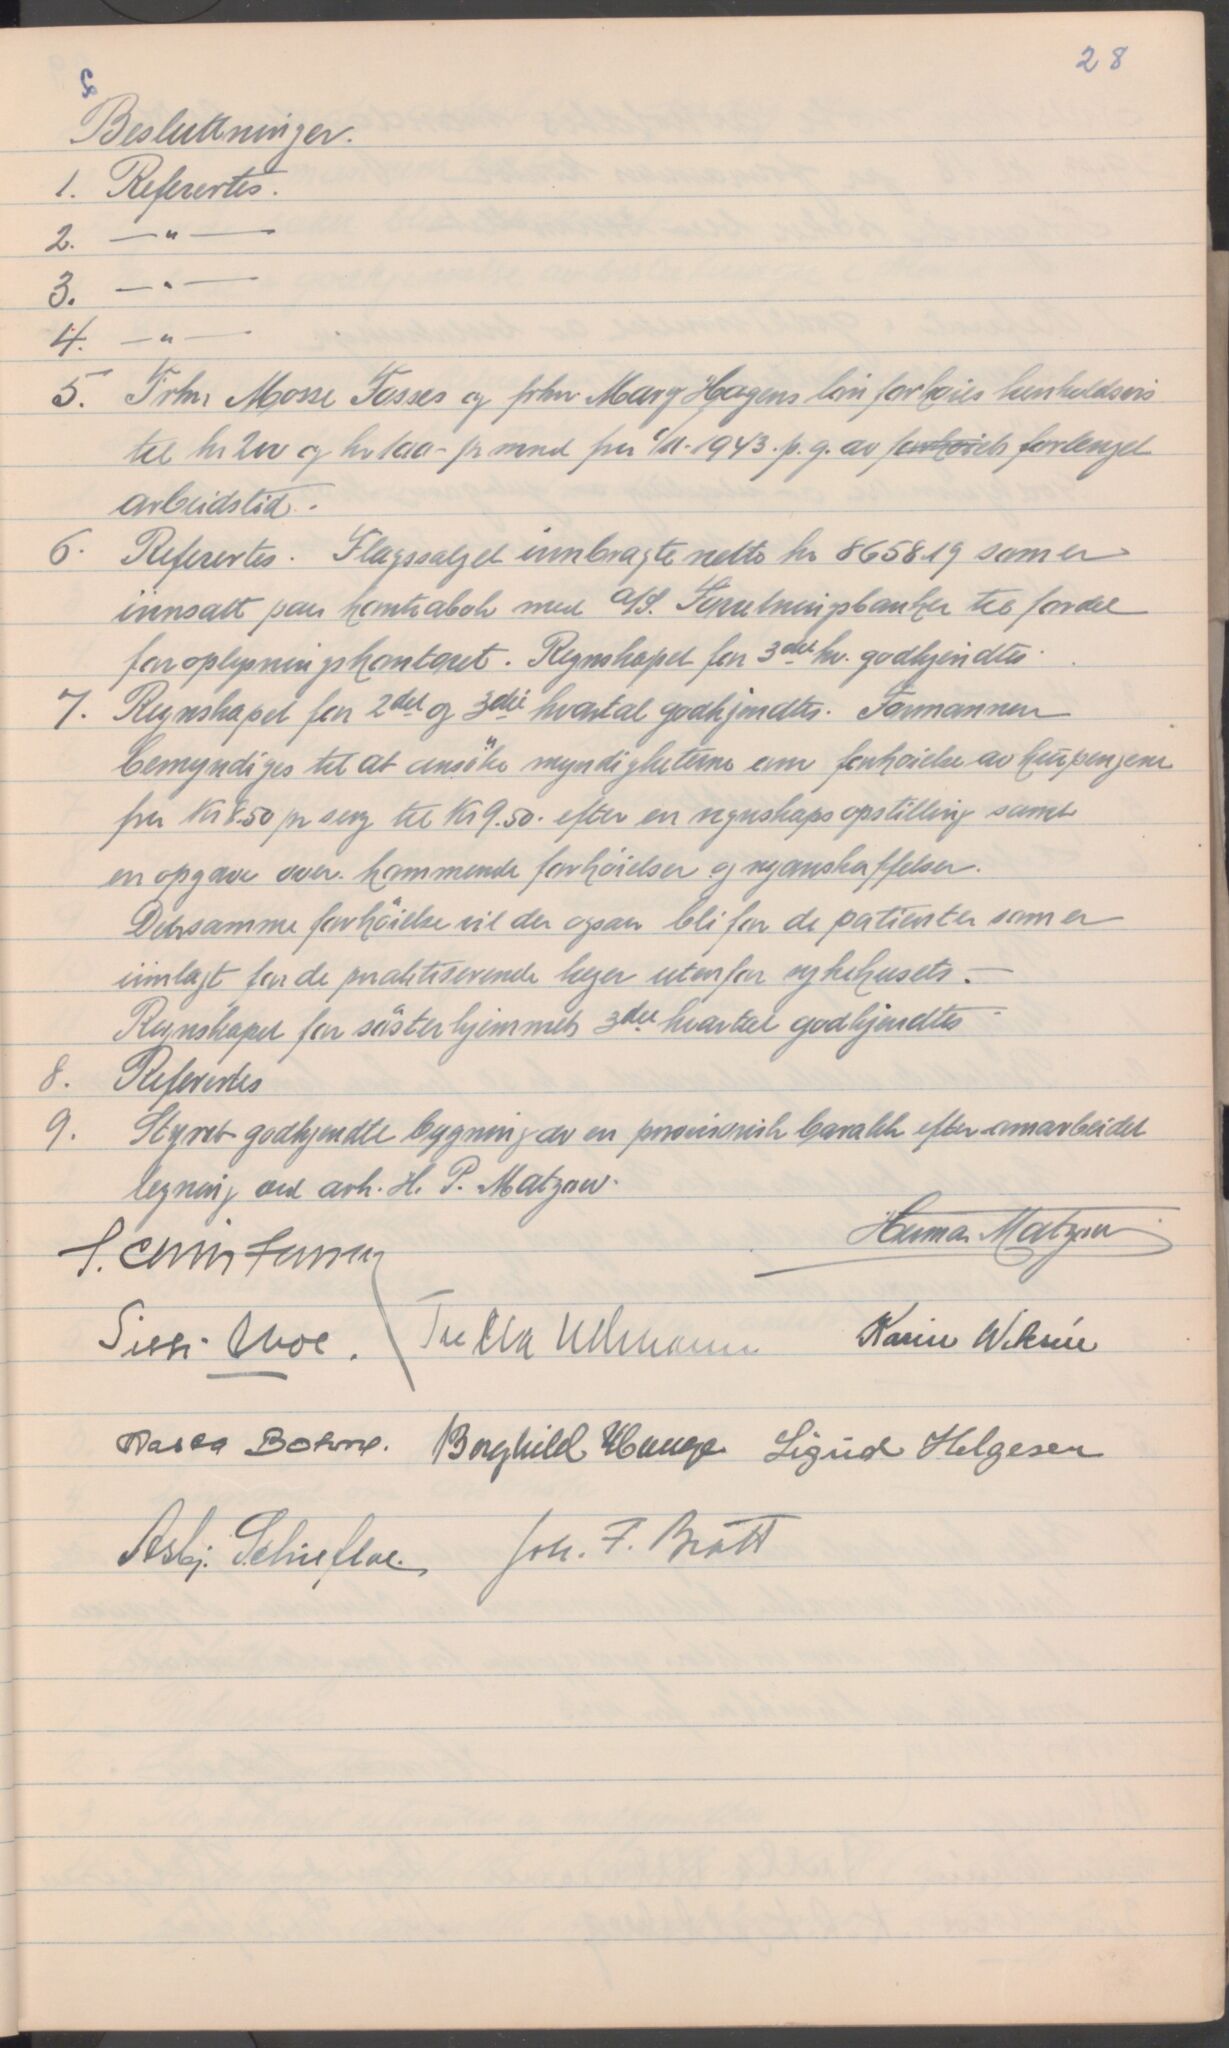 28
Besluttninger.
1. Referertes.
2. — " —
3. — " —
4. — " —
5. Frkn Mosse Fosses og frkn Mary Hagens lön forhöies henholdsvis
til kr 200 og kr 100 - pr mnd fra 1/11-1943. p. g. av forlenget
arbeidstid.
6. Referertes. Flagssalget innbragte netto kr 8658.19 som er
innsatt paa kontrabok med A/S. Forretningsbanken til fordel
for oplysningskontoret. Regnskapet for 3die kv. godkjendtes.
7. Regnskapet for 2det og 3die kvartal godkjendtes. Formannen
bemyndiges til at ansöke myndigheterne om forhöielse av kurpengene
fra Kr 8.50 pr seng til Kr 9.50. efter en regnskapsopstilling samt
en opgave over kommende forhöielser og nyanskaffelser.
Den samme forhöielse vil der ogsaa bli for de patienter som er
innlagt for de praktiserende leger utenfor sykehusets. —
Regnskapet for sösterhjemmets 3die kvartal godkjendtes
8. Referertes
9. Styret godkjendte bygning av en provisorisk barakk efter omarbeidet
tegning ved ark. H. P. Matzow.
Herman Matzow
Sissi Moe. Tulla Ullmann Karin Wiksne
Borghild Hauge Sigrid Helgesen
Asbj. Schiefloe. Joh. F. Bratt